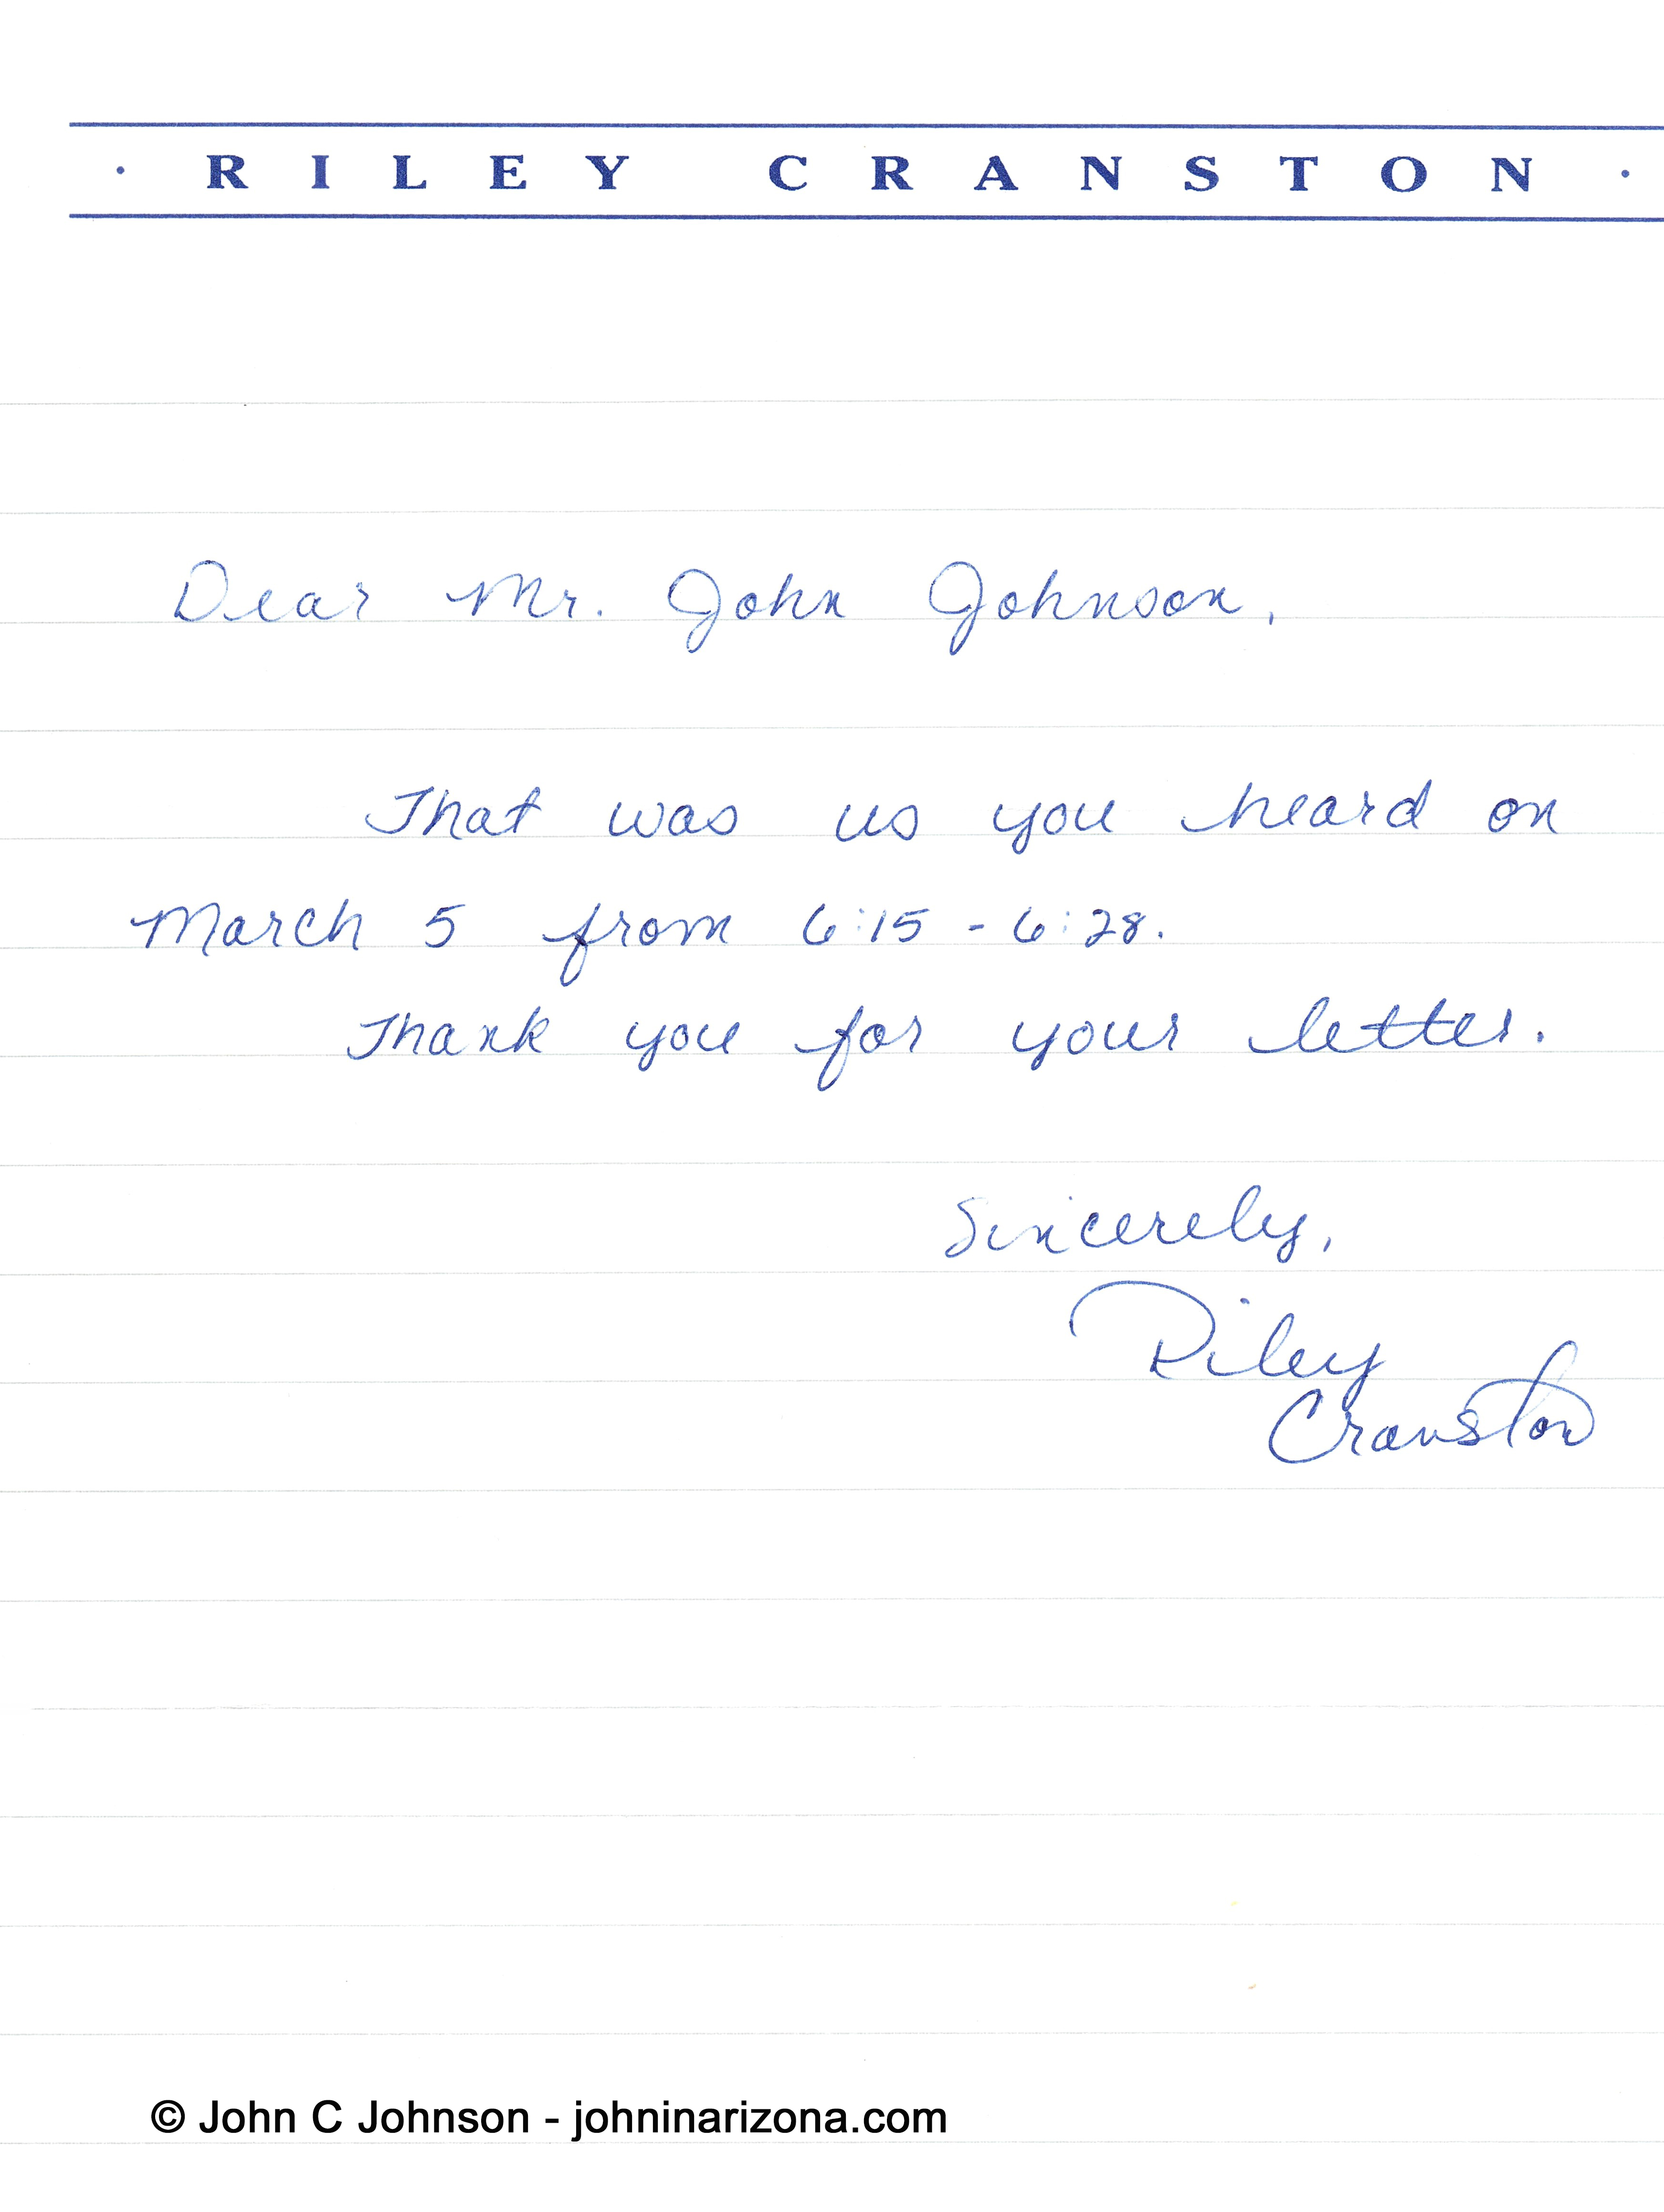 · RILEY CRANSTON ·
Dear Mr. John Johnson,
That was us you heard on
March 5 from 6:15 - 6:28.
Thank you for your letter.
Sincerely,
Riley
Cranston
© John C Johnson - johninarizona.com